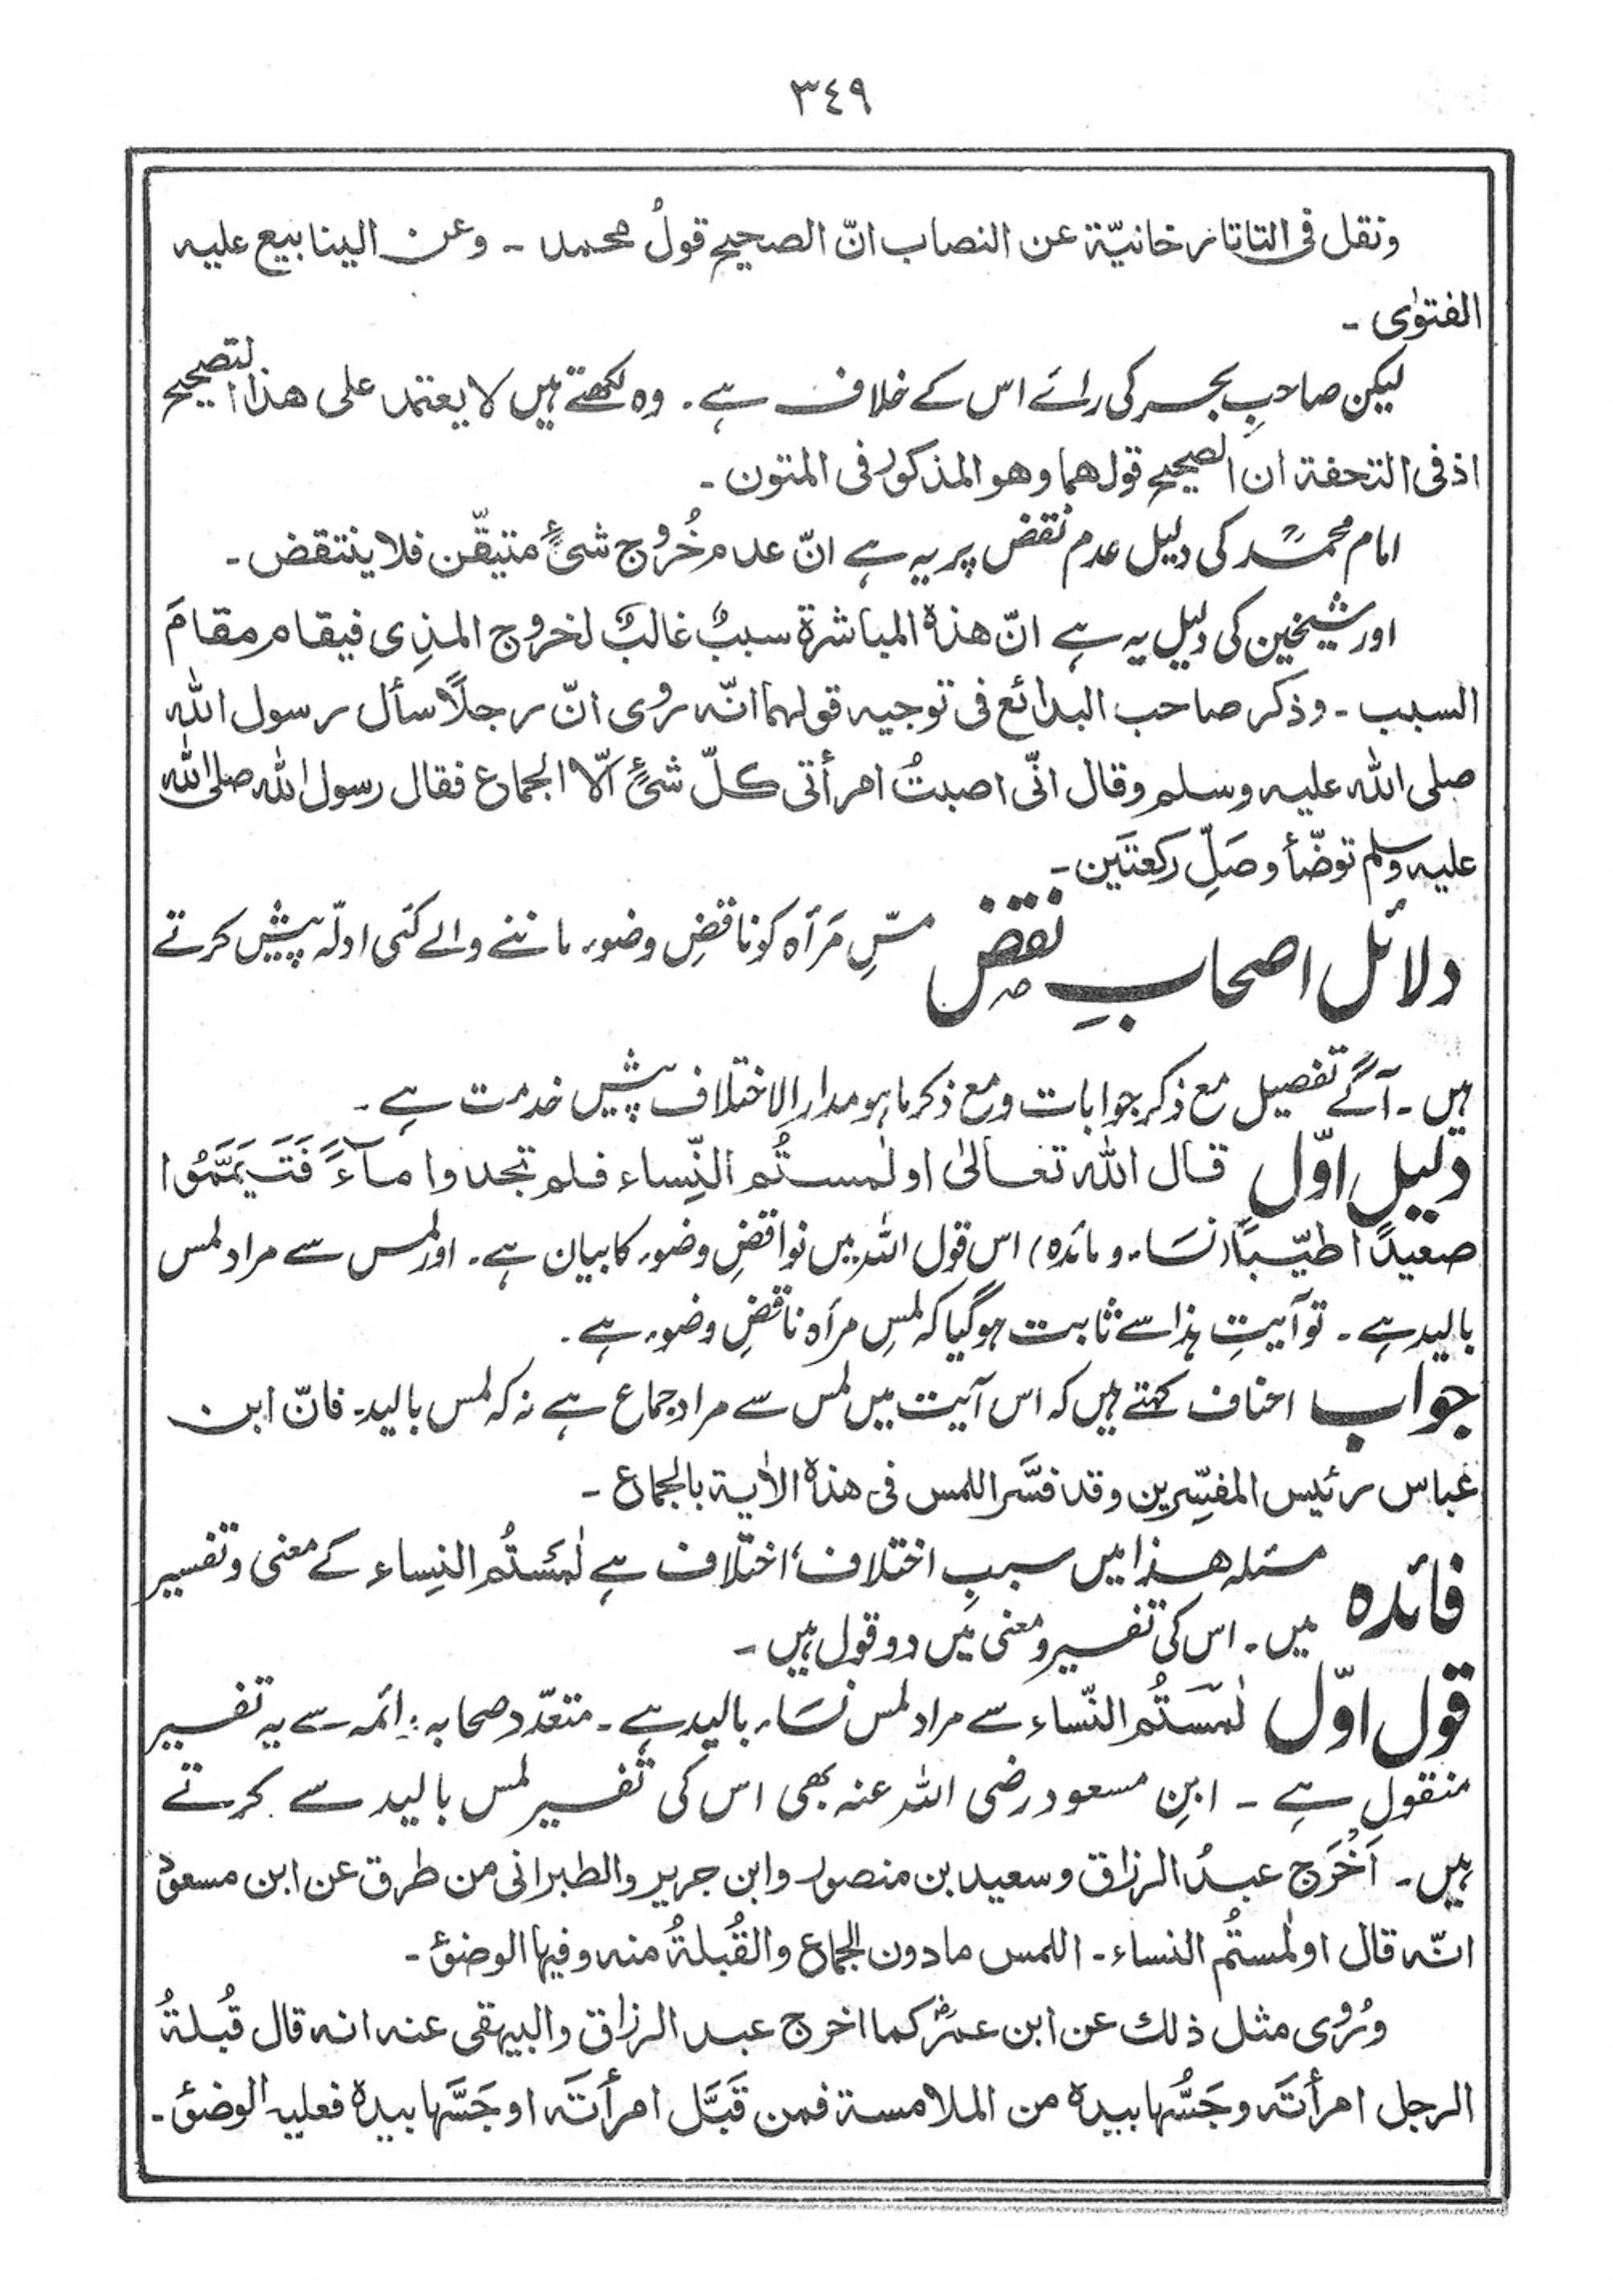 ٣٤٩
ونقل فی التاتارخانیّة عن النصاب انّ الصحیح قولُ محمد ۔ وعن الینابیع علیه
الفتوٰی ۔
لیکن صاحبِ بحر کی رائے اس کے خلاف ہے۔ وہ لکھتے ہیں لا یعتمد علی هذا التصحیح
اذ فی التحفة ان الصحیح قولهما وهو المذکور فی المتون ۔
امام محمدؒ کی دلیل عدم نقض پر یہ ہے انّ عدم خُروج شیٔ متیقّن فلا ینتقض ۔
اور شیخین کی دلیل یہ ہے انّ هذه المباشرة سببٌ غالبٌ لخروج المذِی فیقام مقامَ
السبب ۔ وذکر صاحب البدائع فی توجیه قولهما انّه رُوی انّ رجلاً سأل رسول الله
صلی الله علیه وسلم وقال انّی اصبتُ امرأتی کلّ شیٔ الّا الجماع فقال رسول الله صلی الله
علیه وسلم توضّأ وصَلِّ رکعتَین ۔
دلائل اصحابِ نقض مسِّ مَرأہ کو ناقضِ وضوء ماننے والے کئی ادلّہ پیش کرتے
ہیں ۔ آگے تفصیل مع ذکر جوابات ومع ذکر ما ہو مدار الاختلاف پیش خدمت ہے ۔
دلیل اوّل قال الله تعالیٰ او لٰمستُم النِّساء فلم تجدوا مآءً فَتَیَمَّمُوا
صعیدًا طیّبًا (نسَاء و مائدہ) اس قول اللہ میں نواقضِ وضوء کا بیان ہے۔ اور لمس سے مراد لمس
بالید ہے ۔ تو آیتِ ہذا سے ثابت ہوگیا کہ لمسِ مرأہ ناقضِ وضوء ہے ۔
جواب احناف کہتے ہیں کہ اس آیت میں لمس سے مراد جماع ہے نہ کہ لمس بالید۔ فانّ ابن
عباس رئیس المفسِّرین وقد فسَّر اللمس فی هذه الاٰیة بالجماع ۔
فائدہ مسئلہ ھذا میں سببِ اختلاف، اختلاف ہے لٰمَسْتُم النِساء کے معنی و تفسیر
میں ۔ اس کی تفسیر و معنی میں دو قول ہیں ۔
قول اوّل لٰمَسَتُم النّساء سے مراد لمس نسَاء بالید ہے ۔ متعدّد صحابہ وائمہ سے یہ تفسیر
منقول ہے ۔ ابنِ مسعود رضی اللہ عنہ بھی اس کی تفسیر لمس بالید سے کرتے
ہیں ۔ اَخْرَج عبدُ الرزاق وسعید بن منصور وابن جریر والطبرانی من طرق عن ابن مسعود
انّه قال او لٰمستُم النساء ۔ اللمس مادون الجماع والقُبلةُ منه وفیها الوضؤ ۔
ورُوی مثل ذلك عن ابن عمرؓ کما اخرج عبد الرزاق والبیهقی عنه انه قال قُبلةُ
الرجل امرأتَه وجَسُّها بیده من الملامسة فمن قَبَّل امرأتَه او جَسَّها بیده فعلیه الوضؤ ۔